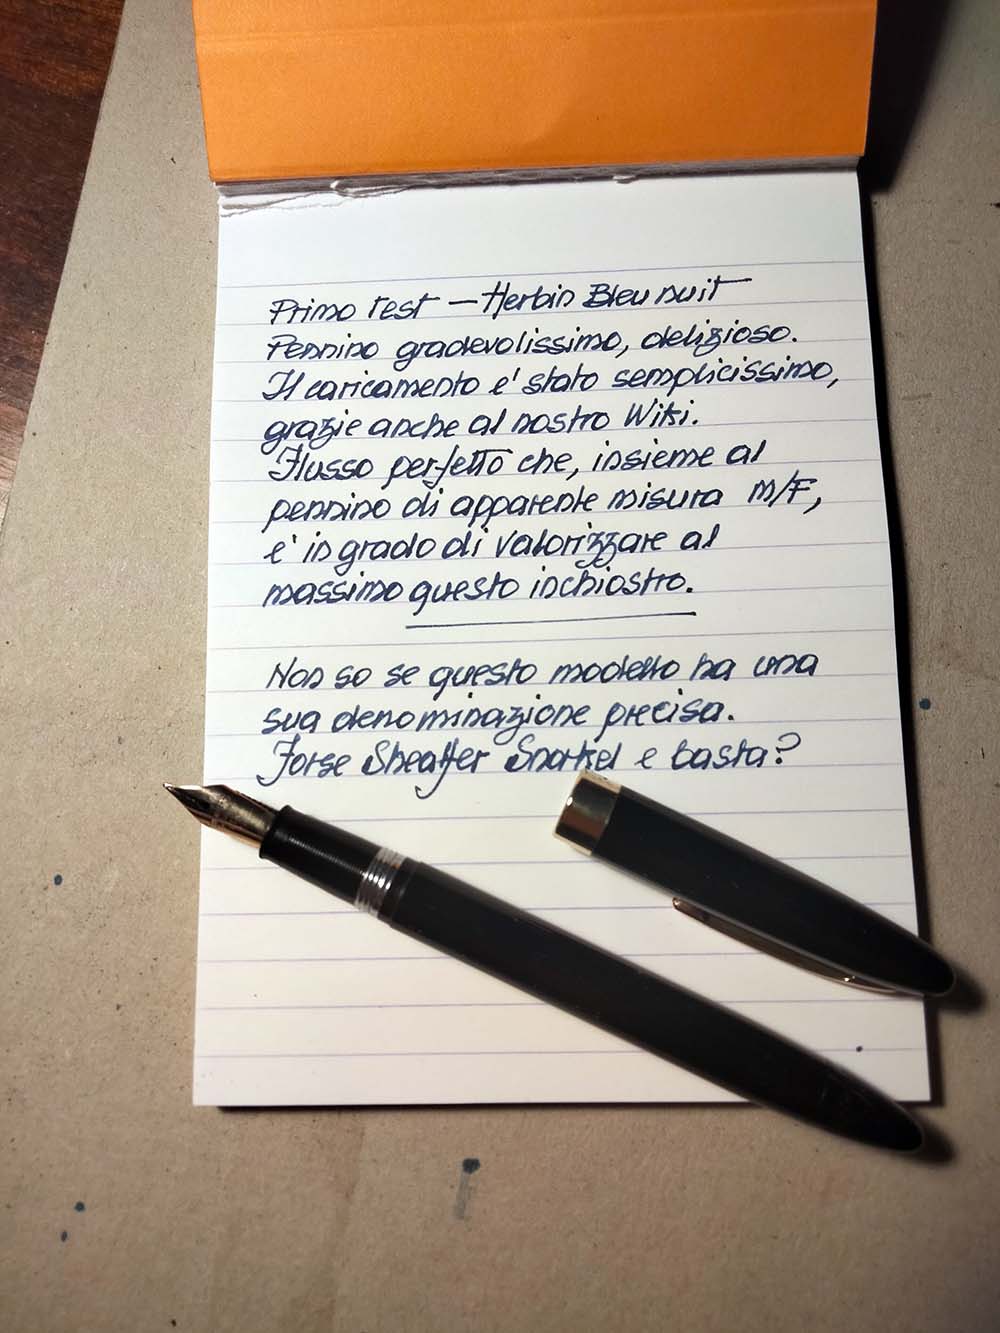 Primo Test - Herbin Bleu nuit
Pennino gradevolissimo, delizioso.
Il caricamento e' stato semplicissimo,
grazie anche al nostro Wiki.
Flusso perfetto che, insieme al
pennino di apparente misura M/F,
e' in grado di valorizzare al
massimo questo inchiostro.
Non so se questo modello ha una
sua denominazione precisa.
Forse Sheaffer Snorkel e basta?